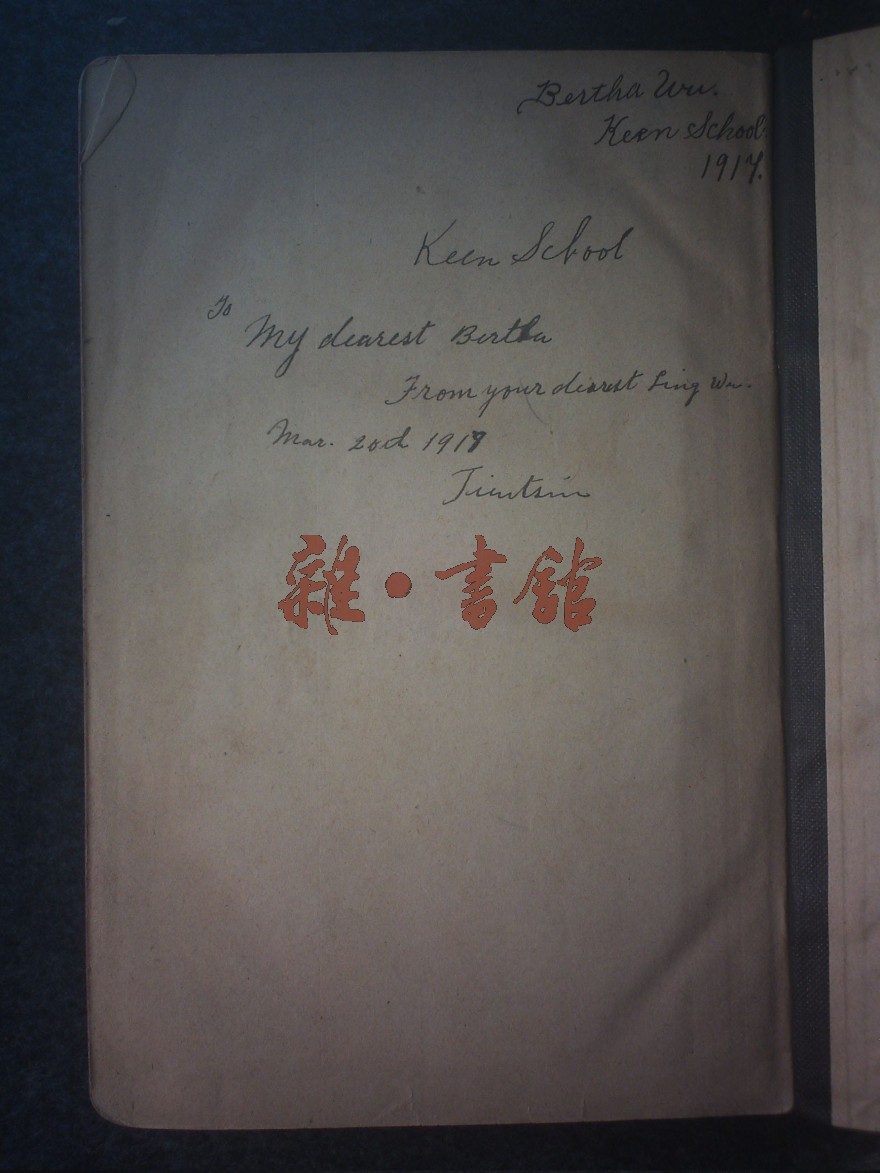 Bertha Wu.
Keen School.
1917.
Keen School
To
My dearest Bertha
From your dearest Ling Wu.
Mar. 20th 1917
Tientsin
雜•書館